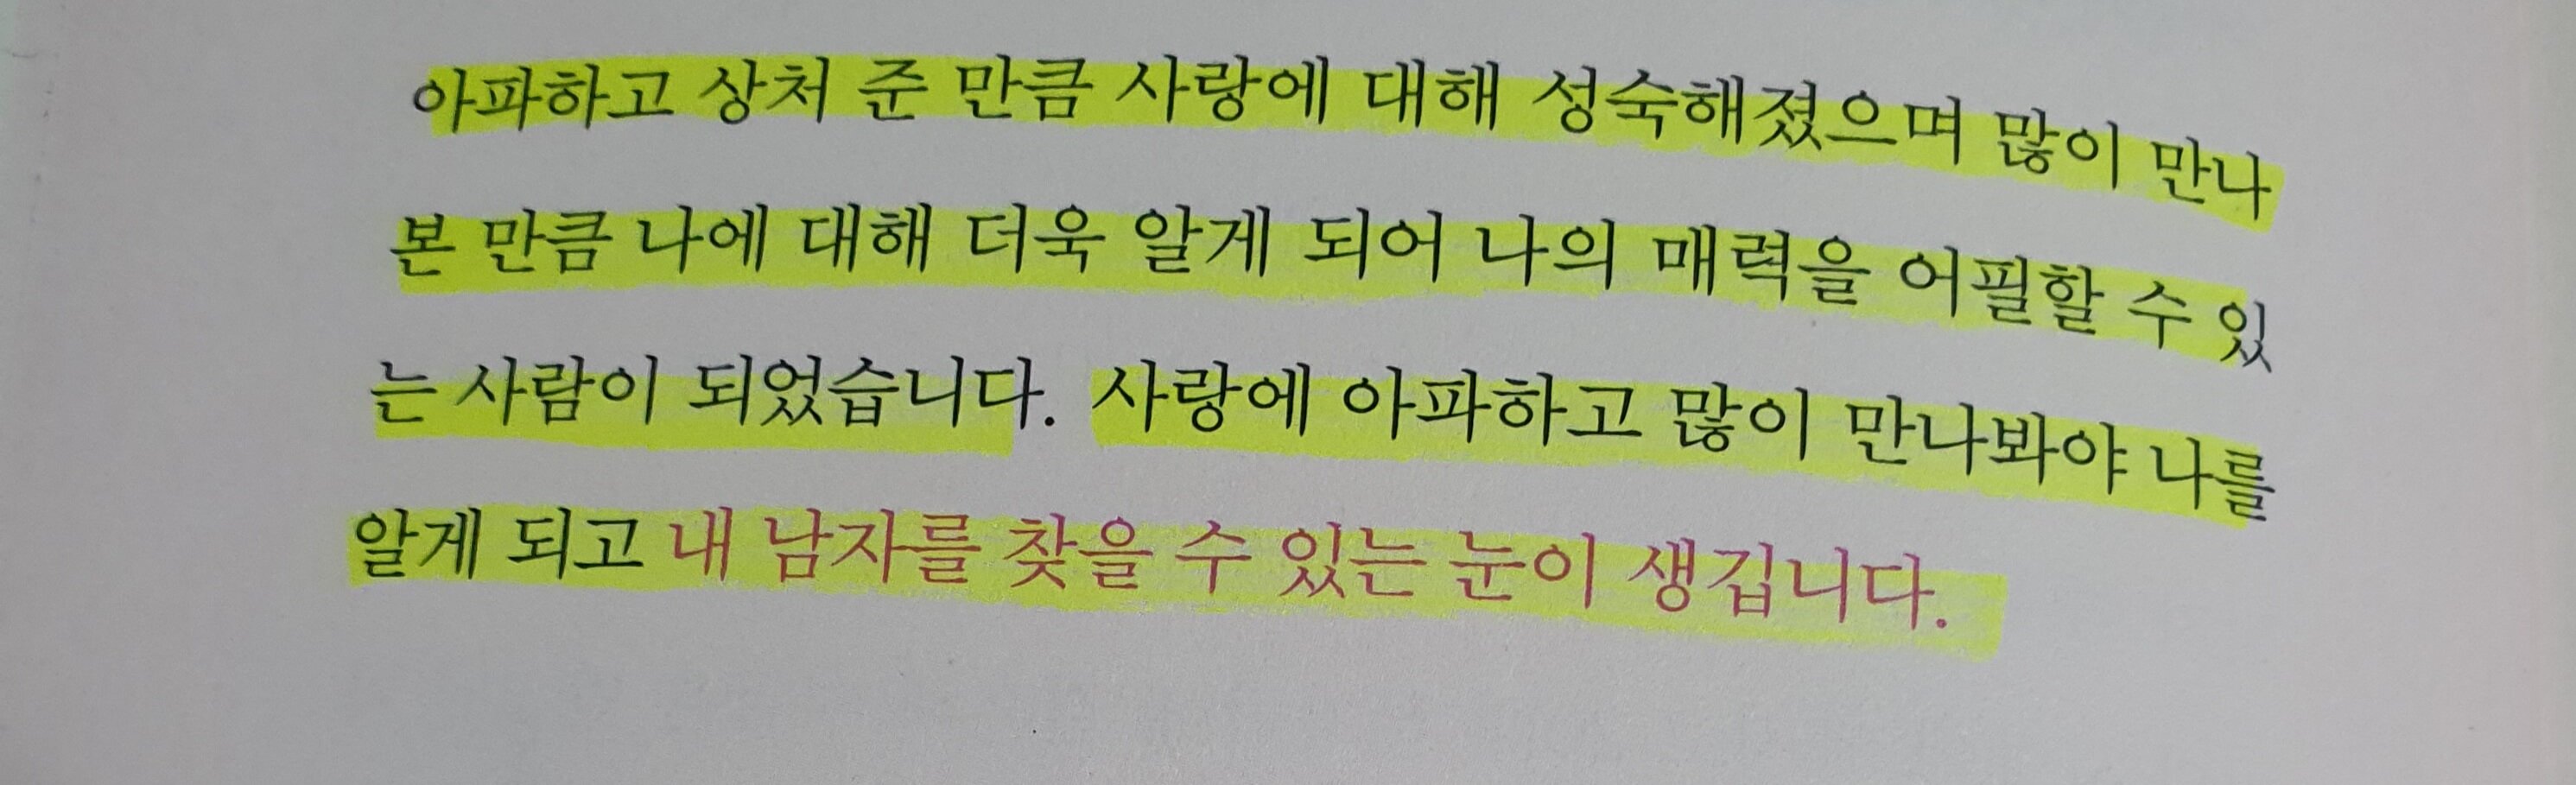 아파하고 상처 준 만큼 사랑에 대해 성숙해졌으며 많이 만나
본 만큼 나에 대해 더욱 알게 되어 나의 매력을 어필할 수 있
는 사람이 되었습니다. 사랑에 아파하고 많이 만나봐야 나를
알게 되고 내 남자를 찾을 수 있는 눈이 생깁니다.